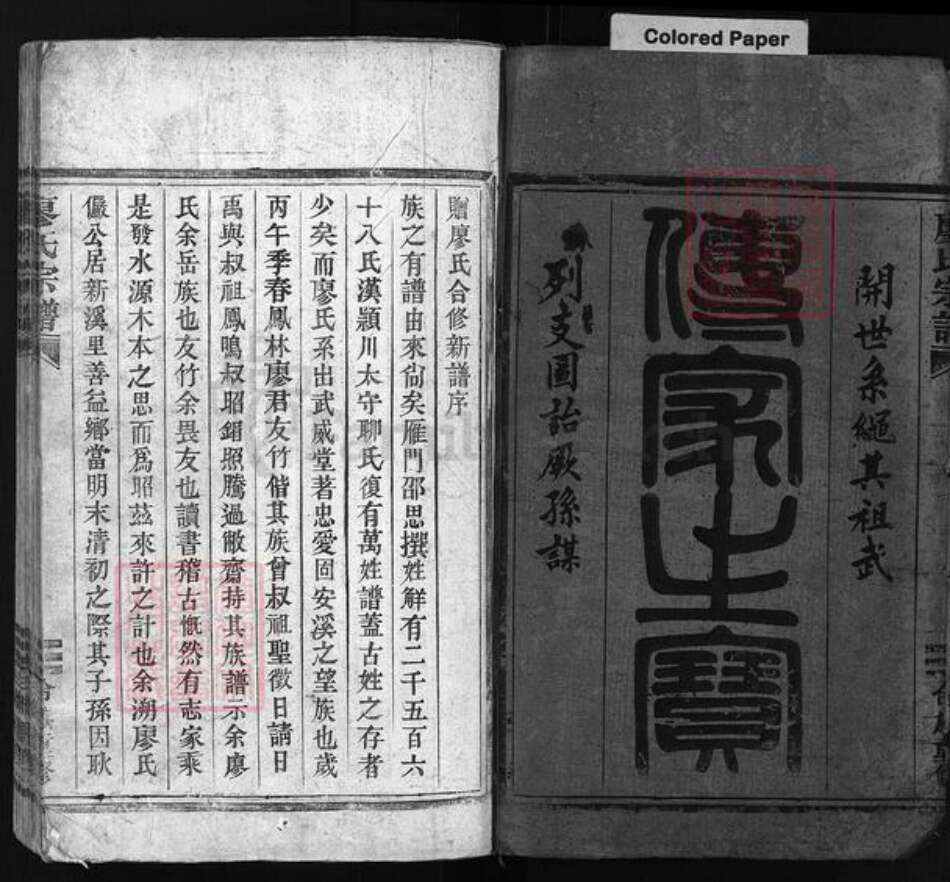 Colored Paper
開世系繩其祖武
傳家之寶
列支圖詒厥孫謀
贈廖氏合修新譜序
族之有譜由來尙矣雁門邵思撰姓解有二千五百六
十八氏漢潁川太守聊氏復有萬姓譜蓋古姓之存者
少矣而廖氏系出武威堂著忠愛固安溪之望族也歲
丙午季春鳳林廖君友竹偕其族曾叔祖聖徵日請日
禹與叔祖鳳鳴叔昭錩照騰過敝齋持其族譜示余廖
氏余岳族也友竹余畏友也讀書稽古慨然有志家乘
是發水源木本之思而爲昭茲來許之計也余溯廖氏
儼公居新溪里善益鄉當明末清初之際其子孫因耿
廖氏宗譜